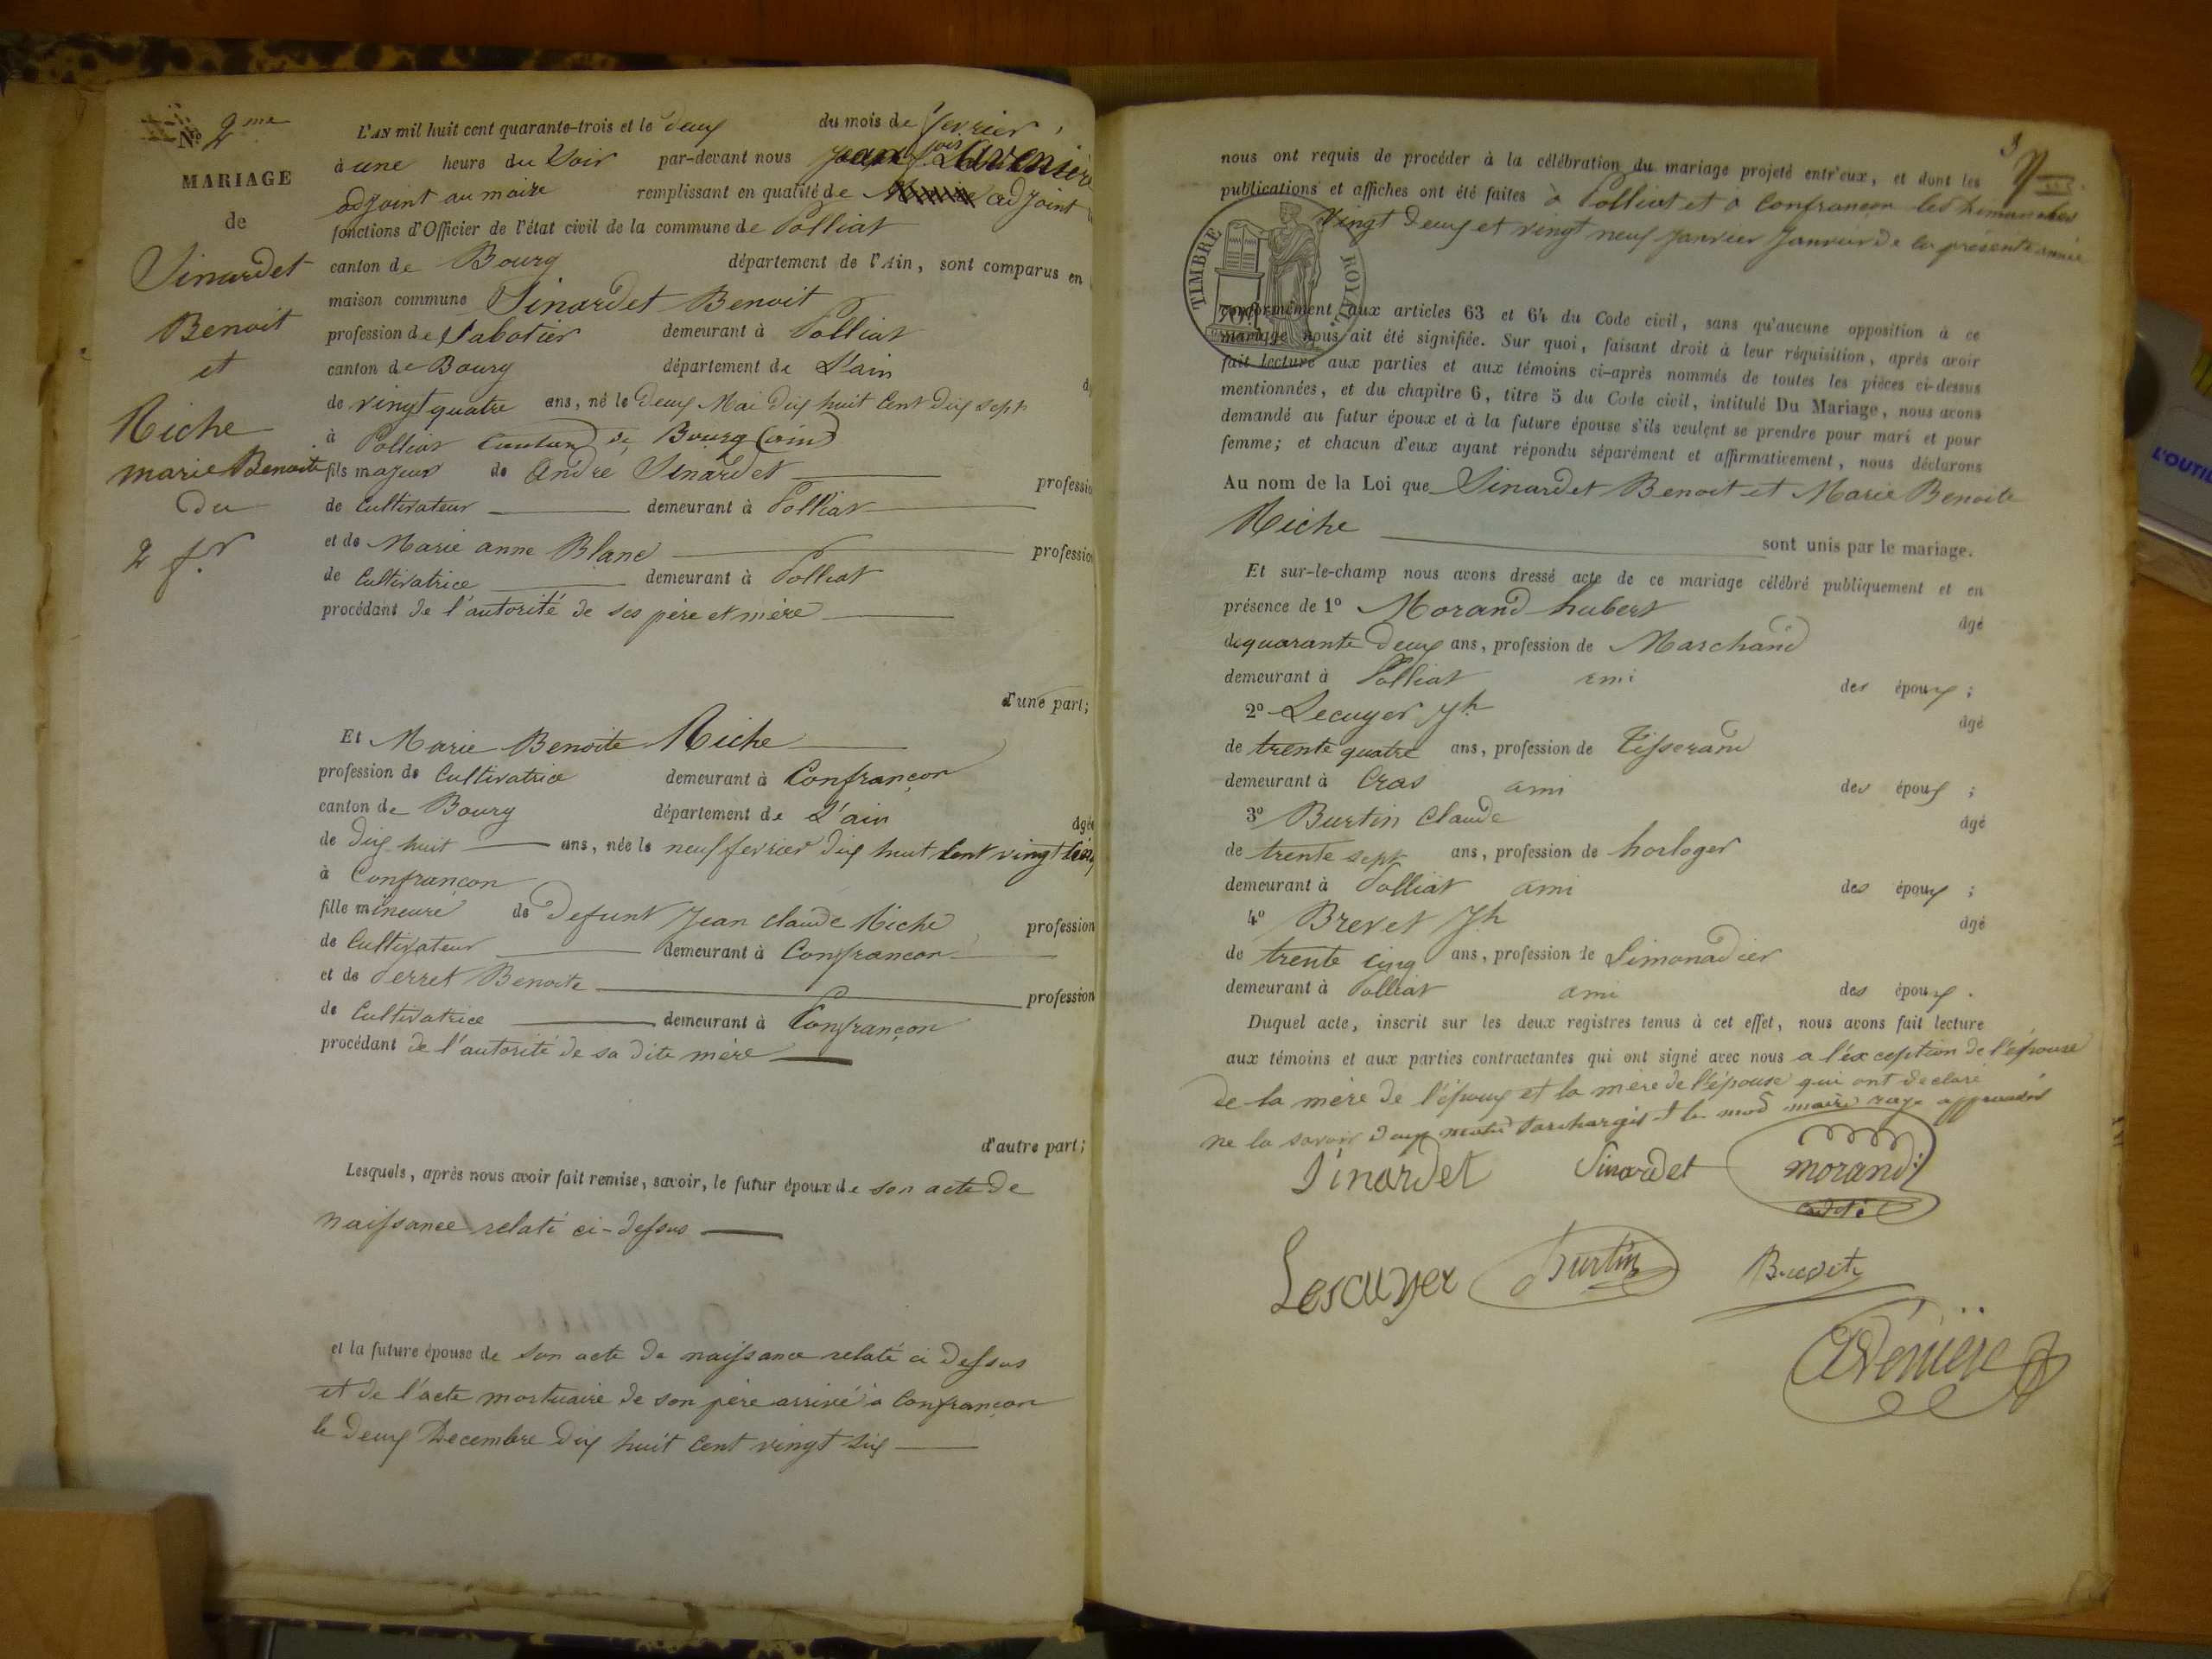 Nº 2me
MARIAGE
de
Sinardet
Benoit
et
Riche
marie Benoite
du
2 fr
L'AN mil huit cent quarante-trois et le deux du mois de fevrier,
à une heure du Soir par-devant nous
adjoint au maire remplissant en qualité de adjoint
fonctions d'Officier de l'état civil de la commune de Polliat
canton de Bourg département de l'Ain, sont comparus en
maison commune Sinardet Benoit
profession de Sabotier demeurant à Polliat
canton de Bourg département de L'ain
de vingt quatre ans, né le deux Mai dix huit Cent dix sept
à Polliat Canton de Bourg (ain)
fils majeur de André Sinardet profession
de Cultivateur demeurant à Polliat
et de Marie anne Blanc profession
de Cultivatrice demeurant à Polliat
procédant de l'autorité de ses père et mère
d'une part;
Et Marie Benoite Riche
profession de Cultivatrice demeurant à Confrançon
canton de Bourg département de L'ain âgée
de dix huit ans, née le neuf fevrier dix huit Cent vingt cinq
à Confrançon
fille mineure de Defunt Jean claude Riche profession
de Cultivateur demeurant à Confrancon
et de Perret Benoite profession
de Cultivatrice demeurant à Confrançon
procédant de l'autorité de sa dite mère
d'autre part;
Lesquels, après nous avoir fait remise, savoir, le futur époux de son acte de
naissance relaté ci-dessus
et la future épouse de son acte de naissance relaté ci dessus
et de l'acte mortuaire de son père arrivé à Confrançon
le deux Decembre dix huit Cent vingt six
3
nous ont requis de procéder à la célébration du mariage projeté entr'eux, et dont les
publications et affiches ont été faites à Polliat et à Confrancon les Dimanches
vingt deux et vingt neuf janvier Janvier de la présente année
TIMBRE ROYAL
conformément aux articles 63 et 64 du Code civil, sans qu'aucune opposition à ce
mariage nous ait été signifiée. Sur quoi, faisant droit à leur réquisition, après avoir
fait lecture aux parties et aux témoins ci-après nommés de toutes les pièces ci-dessus
mentionnées, et du chapitre 6, titre 5 du Code civil, intitulé Du Mariage, nous avons
demandé au futur époux et à la future épouse s'ils veulent se prendre pour mari et pour
femme; et chacun d'eux ayant répondu séparément et affirmativement, nous déclarons
Au nom de la Loi que Sinardet Benoit et Marie Benoite
Riche sont unis par le mariage.
Et sur-le-champ nous avons dressé acte de ce mariage célébré publiquement et en
présence de 1º Morand hubert âgé
de quarante deux ans, profession de Marchand
demeurant à Polliat ami des époux;
2º Lecuyer Jh âgé
de trente quatre ans, profession de Tisserand
demeurant à Cras ami des époux;
3º Burtin Claude âgé
de trente sept ans, profession de horloger
demeurant à Polliat ami des époux;
4º Brevet Jh âgé
de trente cinq ans, profession de Limonadier
demeurant à Polliat ami des époux.
Duquel acte, inscrit sur les deux registres tenus à cet effet, nous avons fait lecture
aux témoins et aux parties contractantes qui ont signé avec nous a l'exception de l'épouse
de la mère de l'époux et la mère de l'épouse qui ont déclaré
ne la savoir deux surchargés et le mot maire rayé approuvés
Sinardet Sinardet morand
cadet
Lescuyer Burtin Brevet
L'OUTIL